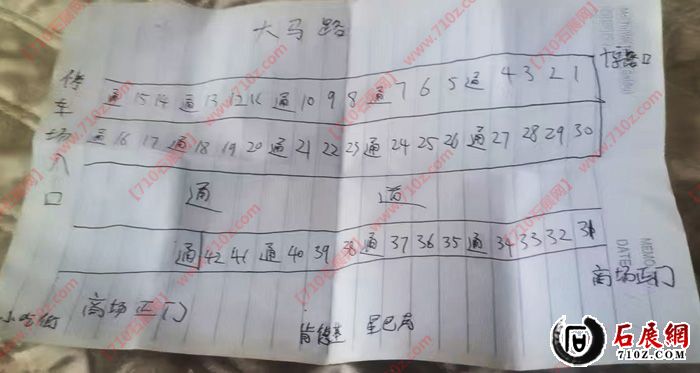 大马路
十字路口
停车场入口
通 15 14 通 13 12 11 通 10 9 8 通 7 6 5 通 4 3 2 1
通 16 17 通 18 19 20 通 21 22 23 通 24 25 26 通 27 28 29 30
通 道
通 42 41 通 40 39 38 通 37 36 35 通 34 33 32 31
商场正门
小吃街 商场正门
肯德基 星巴克
MEMO
DATE
【710石展网】www.710z.com
石展網
710Z.COM